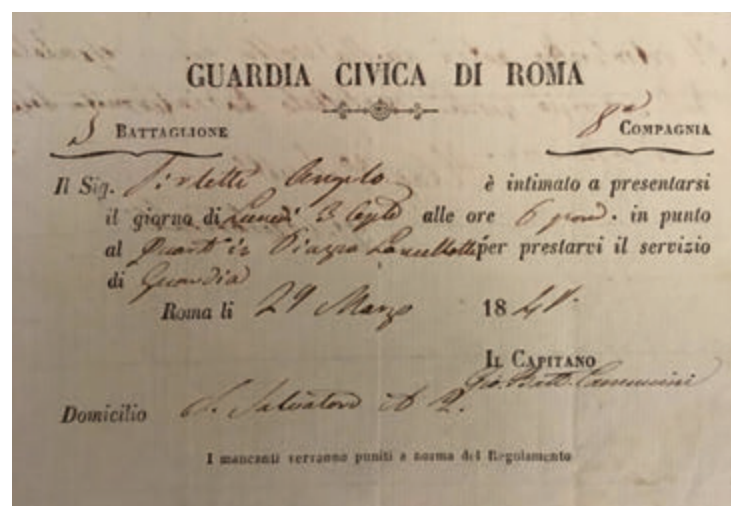 GUARDIA CIVICA DI ROMA
BATTAGLIONE 8ª COMPAGNIA
Il Sig. Angelo è intimato a presentarsi
il giorno di Lunedì 3 alle ore 6 pom. in punto
al Quart in Piazza Lancellotti per prestarvi il servizio
di Guardia
Roma li 29 Marzo 184
IL CAPITANO
Gio. Batt. Camuccini
Domicilio S. Salvatore 2.
I mancanti verranno puniti a norma del Regolamento